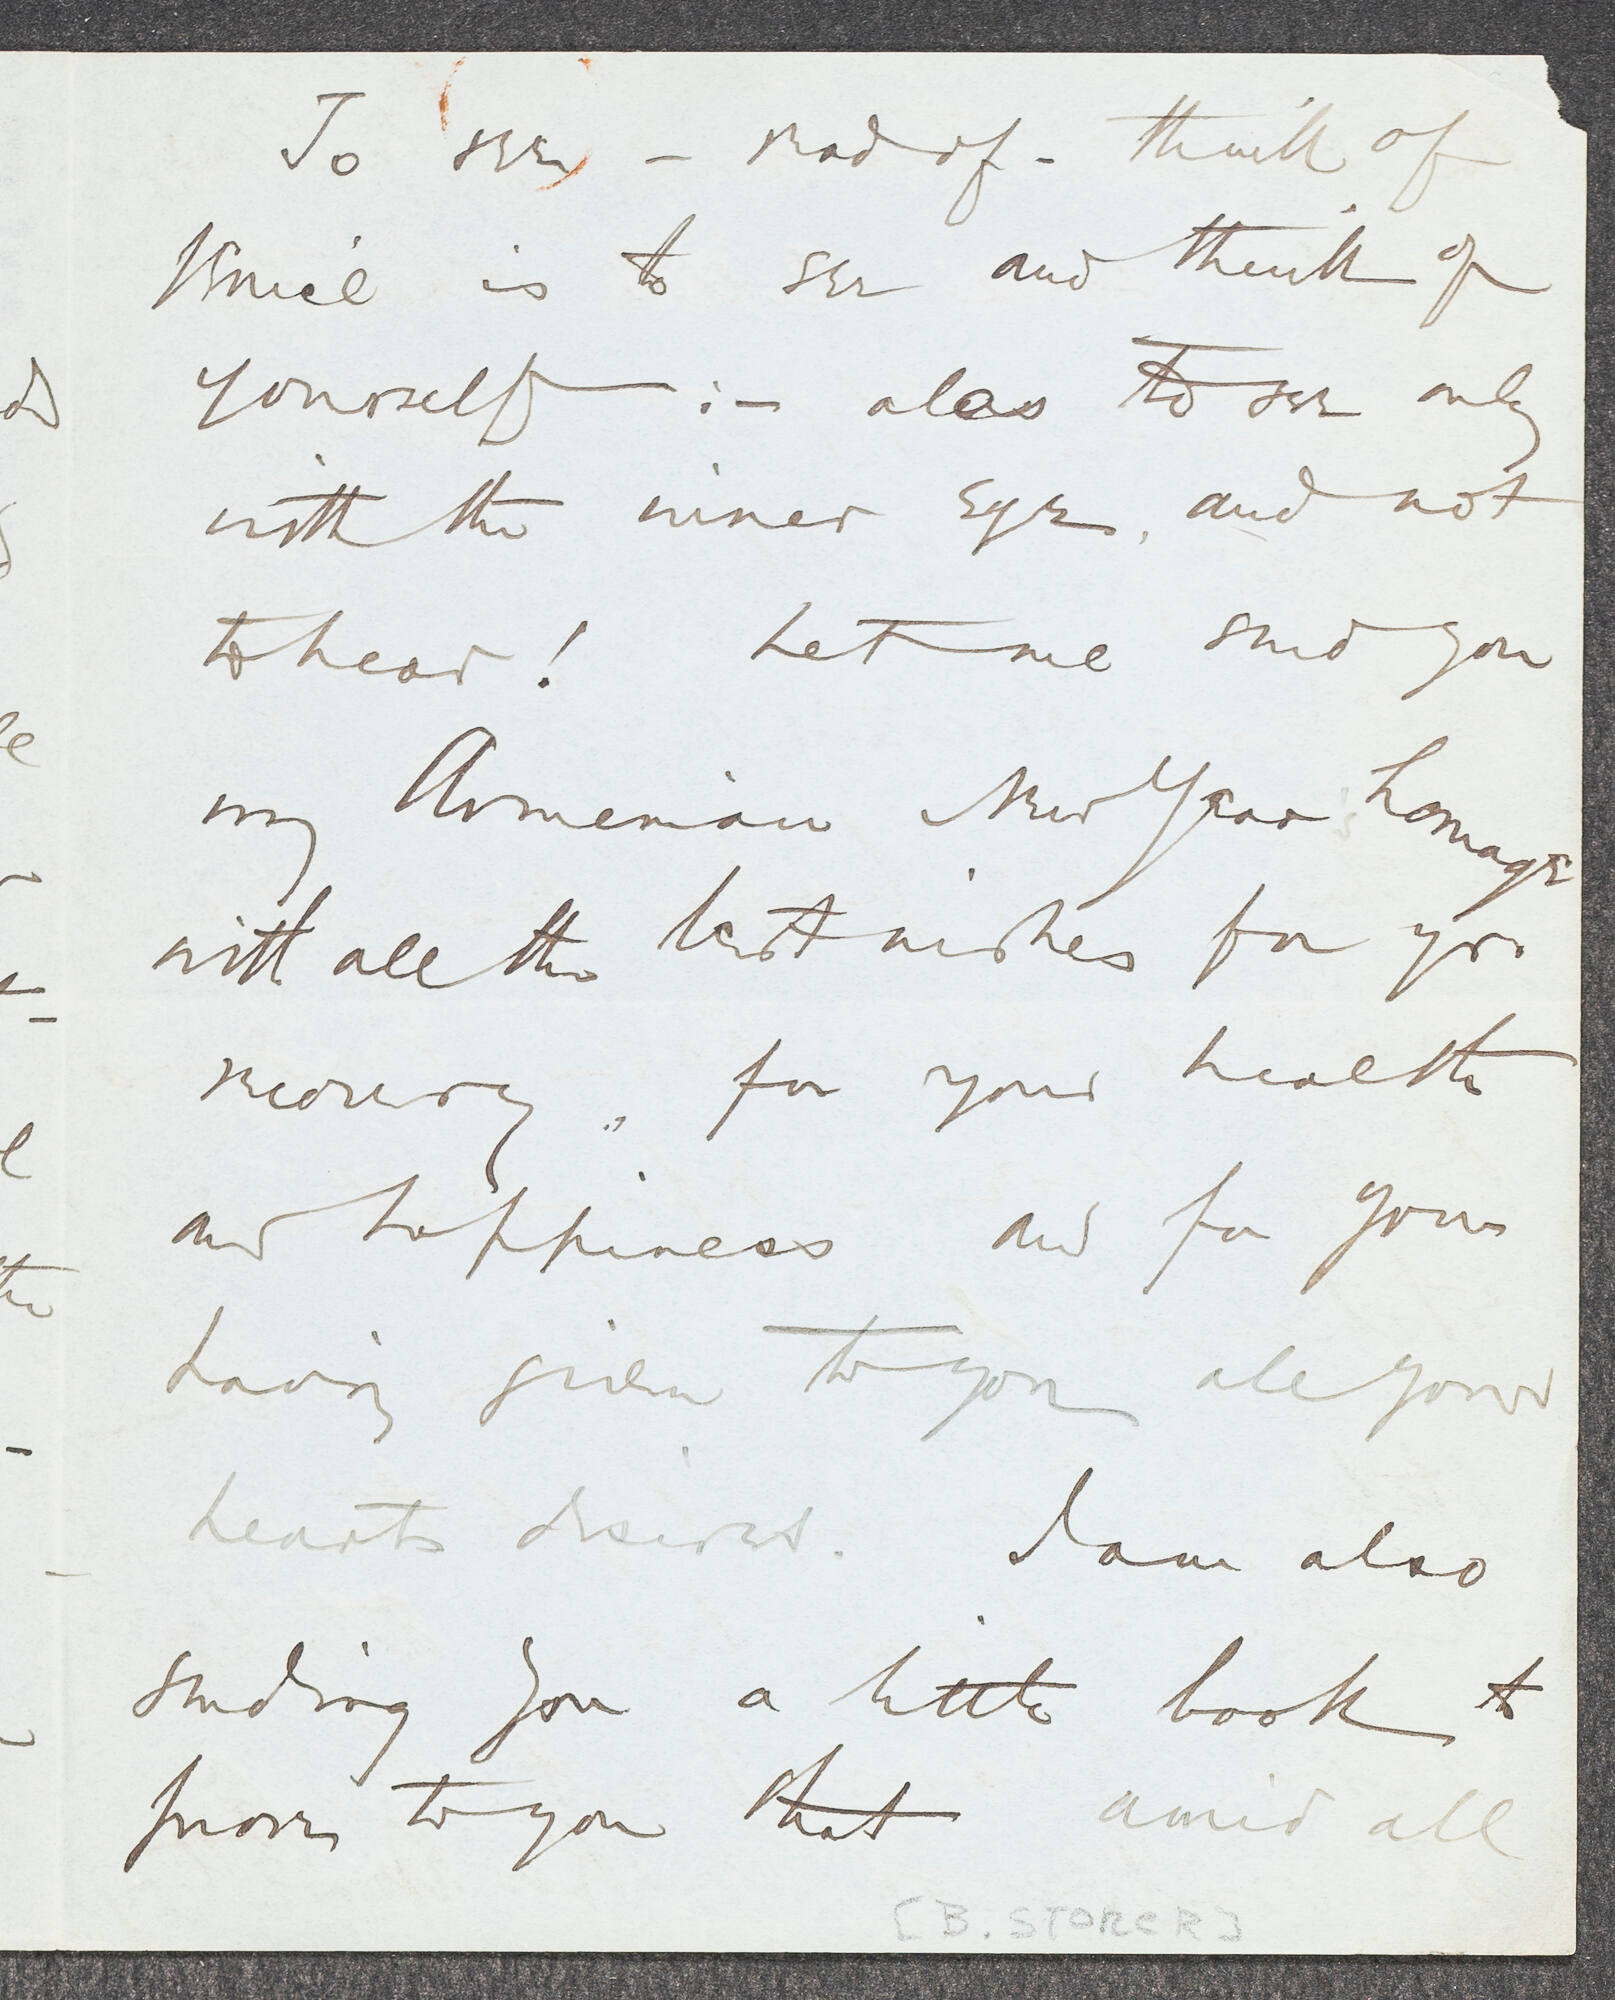 To see – read of – think of
Venice is to see and think of
yourself :– alas to see only
with the inner eye, and not
to hear! Let me send you
my Armenian New Year's homage
with all the best wishes for yr.
recovery, for your health
and happiness and for your
having given to you all your
hearts desires. I am also
sending you a little book to
prove to you that amid all
[B. STORER]